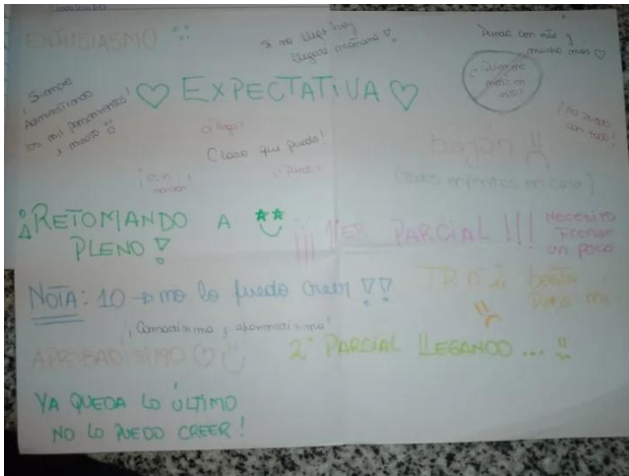 ENTUSIASMO
Si no llego hoy
llegaré mañana!
Puedo con más y
mucho más ♡
¿Quién me
metió en
esto?
¡Siempre
Administrando
los mil pensamientos!
y miedo
♡ EXPECTATIVA ♡
¡No puedo
con todo!
Claro que puedo!
¿Puedo?
bajón
(todos enfermos en casa)
¡RETOMANDO A
PLENO!
¡¡¡ 1ER PARCIAL !!!
Necesito
Frenar
un poco
NOTA: 10 → no lo puedo creer!!
TP nº 2
¡Cansadísima y apasionadísima!
APROBADÍSIMO ♡
2º PARCIAL LLEGANDO ...
YA QUEDA LO ÚLTIMO
NO LO PUEDO CREER!